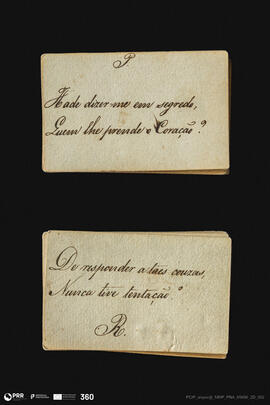 P.
Hade dizer-me em segredo,
Quem lhe prende o Coração?
De responder a taes couzas,
Nunca tive tentação.
R.
PRR
360